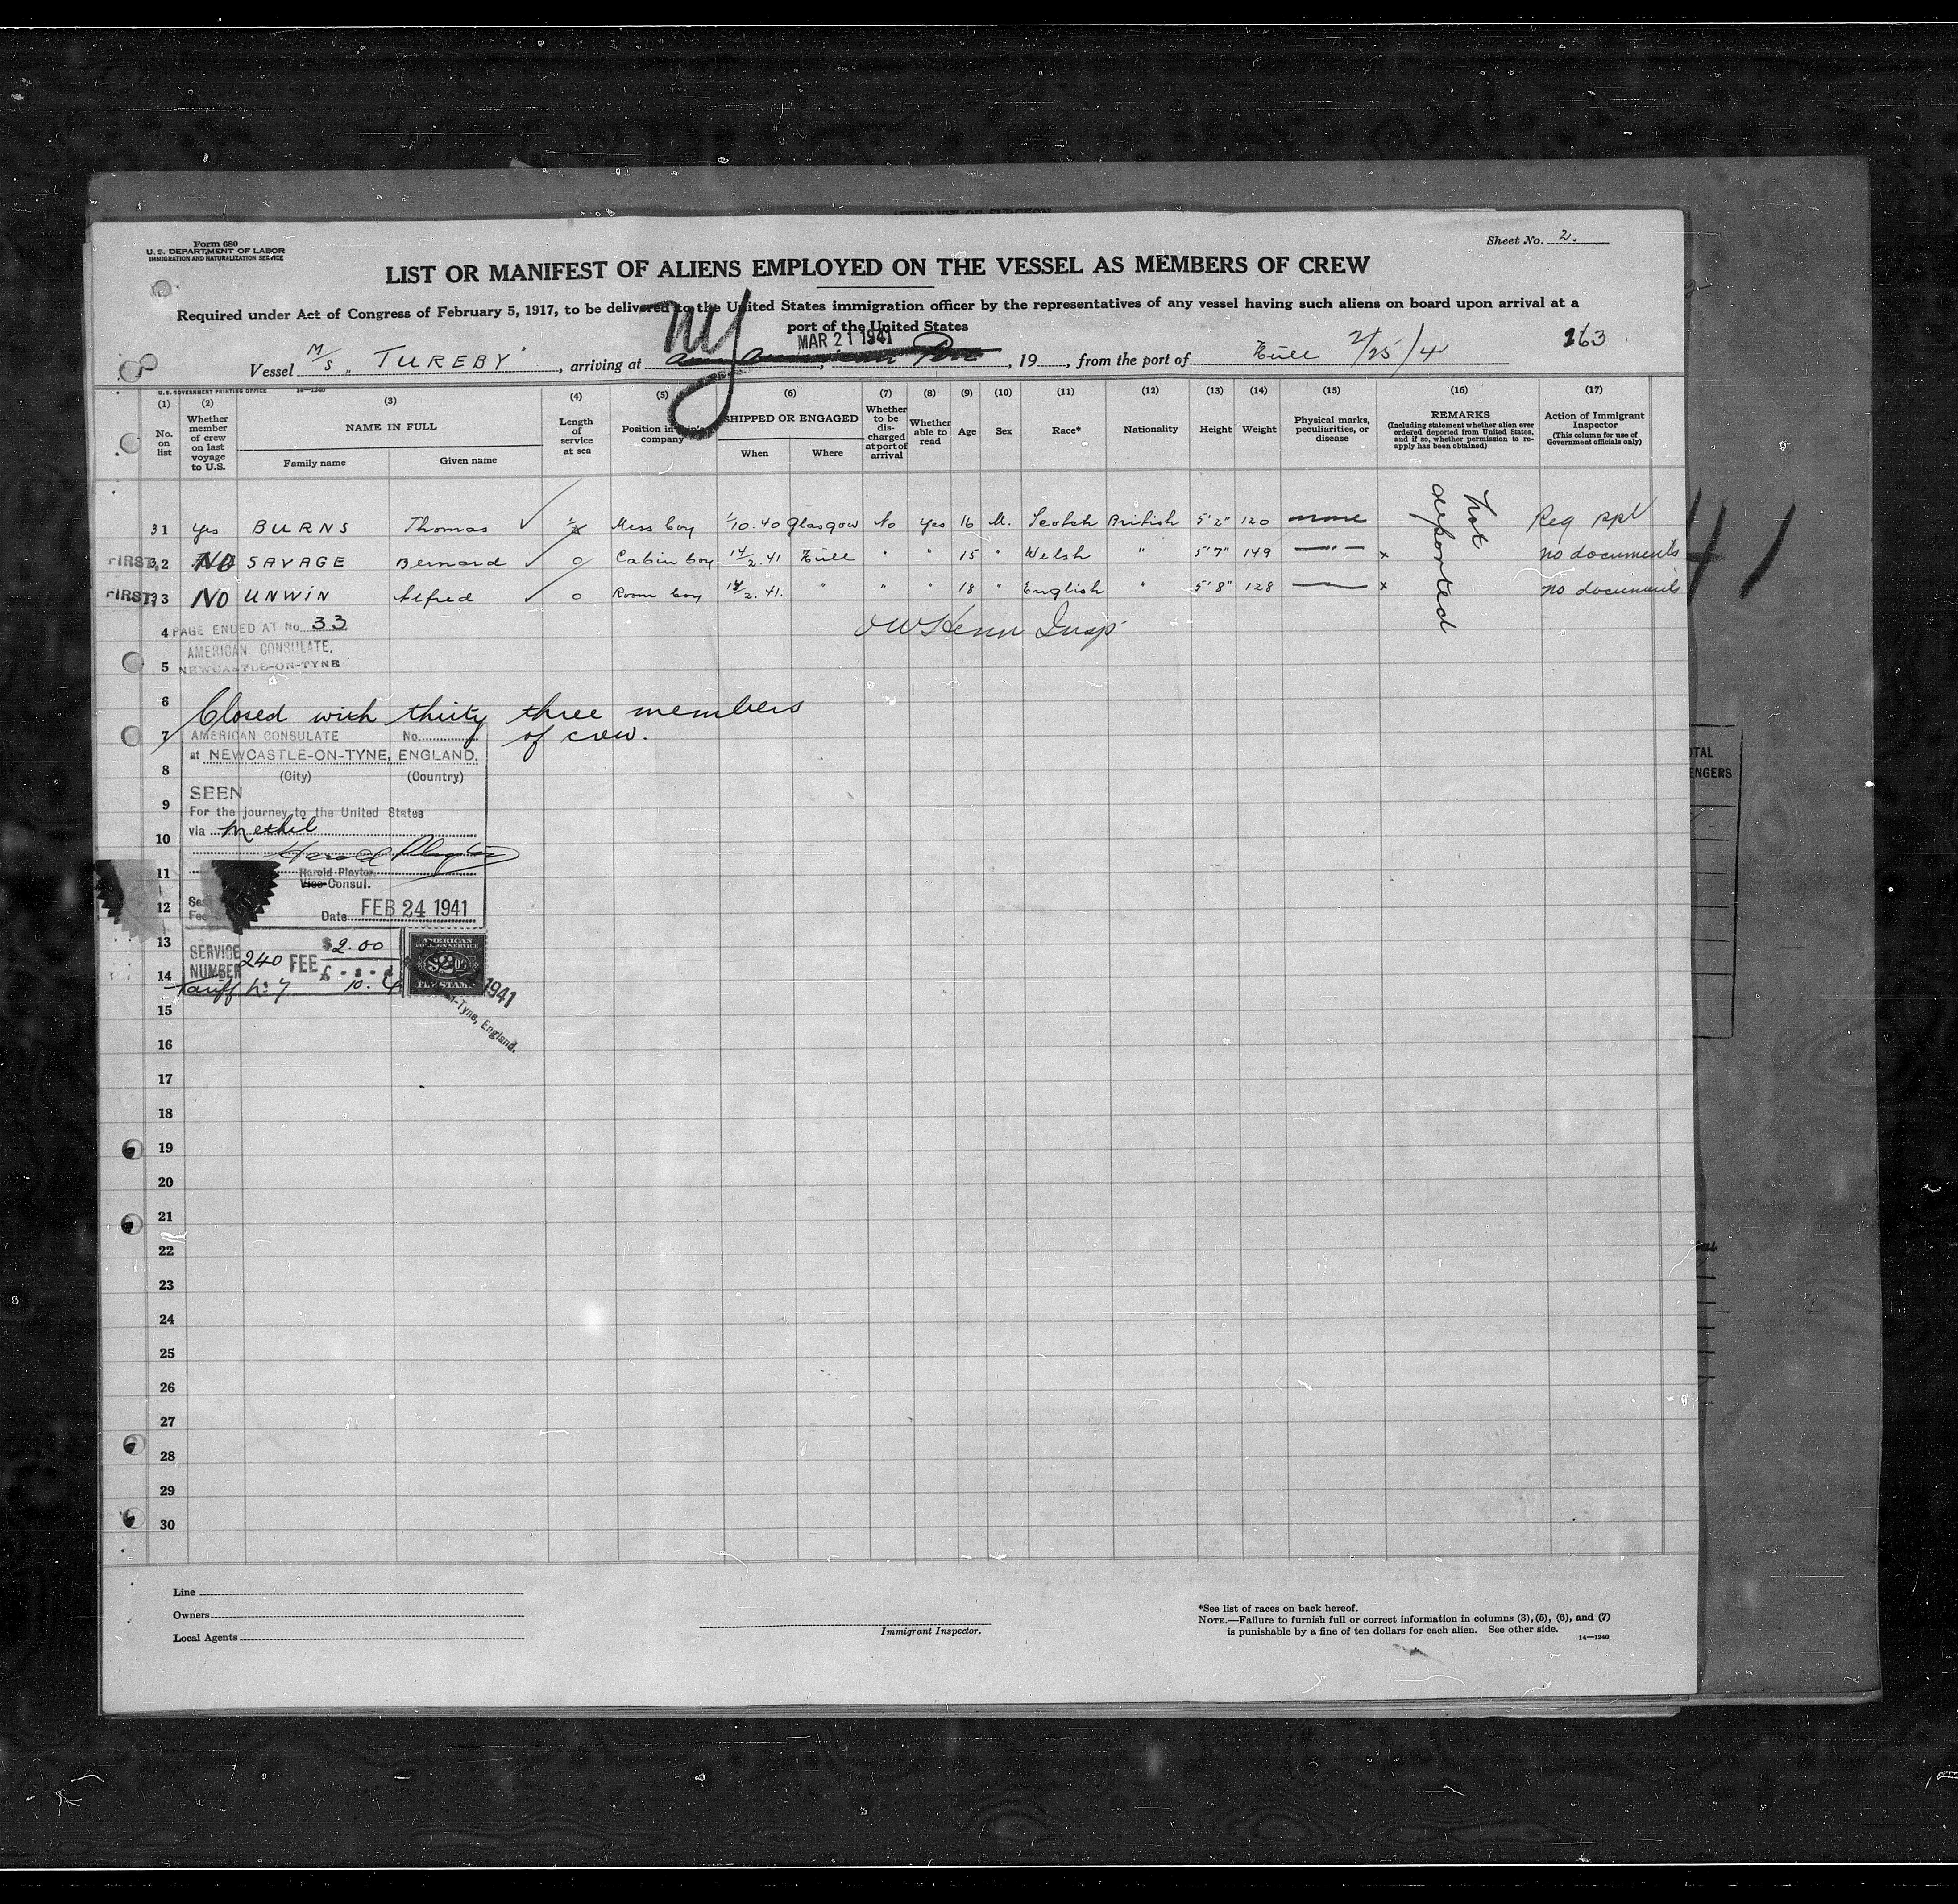 Form 680
U. S. DEPARTMENT OF LABOR
IMMIGRATION AND NATURALIZATION SERVICE
Sheet No. 2.
LIST OR MANIFEST OF ALIENS EMPLOYED ON THE VESSEL AS MEMBERS OF CREW
Required under Act of Congress of February 5, 1917, to be delivered to the United States immigration officer by the representatives of any vessel having such aliens on board upon arrival at a
port of the United States
NY
MAR 21 1941
263
Vessel M/S "TUREBY", arriving at any American Port, 19, from the port of Hull 2/25/41
U. S. GOVERNMENT PRINTING OFFICE 14—1240
(1) (2) (3) (4) (5) (6) (7) (8) (9) (10) (11) (12) (13) (14) (15) (16) (17)
No. on list
Whether member of crew on last voyage to U.S.
NAME IN FULL
Family name
Given name
Length of service at sea
Position in ship's company
SHIPPED OR ENGAGED
When
Where
Whether to be discharged at port of arrival
Whether able to read
Age
Sex
Race*
Nationality
Height
Weight
Physical marks, peculiarities, or disease
REMARKS
(Including statement whether alien ever ordered deported from United States, and if so, whether permission to reapply has been obtained)
Action of Immigrant Inspector
(This column for use of Government officials only)
31 yes BURNS Thomas Mess boy 1/10.40 Glasgow No Yes 16 M. Scotch British 5'2" 120 none Req
FIRST, 32 NO SAVAGE Bernard 0 Cabin boy 14/2.41 Hull " " 15 " Welsh " 5'7" 149 — " — x no documents
FIRST, 33 NO UNWIN Alfred 0 Room boy 14/2.41. " " " 18 " English " 5'8" 128 — x no documents
Not deported
4 PAGE ENDED AT No. 33
AMERICAN CONSULATE,
5 NEWCASTLE-ON-TYNE
Insp
6
Closed with thirty three members
of crew.
7 AMERICAN CONSULATE No.
at NEWCASTLE-ON-TYNE, ENGLAND.
8 (City) (Country)
SEEN
9 For the journey to the United States
via Methil
10
11 Harold Playter
Vice Consul.
12 Date FEB 24 1941
13 SERVICE NUMBER 240 FEE $2.00
£ - s - d
14 Tariff No 7 10.
AMERICAN
FOREIGN SERVICE
$2.00
FEE STAMP
1941
-Tyne, England.
15
16
17
18
19
20
21
22
23
24
25
26
27
28
29
30
Line
Owners
Local Agents
Immigrant Inspector.
*See list of races on back hereof.
NOTE.—Failure to furnish full or correct information in columns (3), (5), (6), and (7)
is punishable by a fine of ten dollars for each alien. See other side.
14—1240